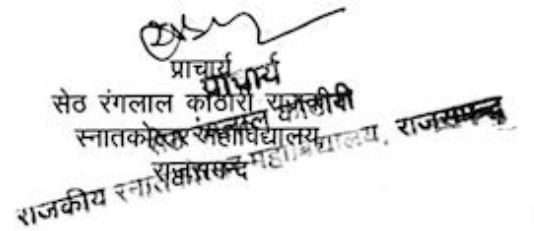 प्राचार्य
सेठ रंगलाल कोठारी राजकीय
स्नातकोत्तर महाविद्यालय,
राजसमन्द
प्राचार्य
सेठ रंगलाल कोठारी
राजकीय स्नातकोत्तर महाविद्यालय, राजसमन्द